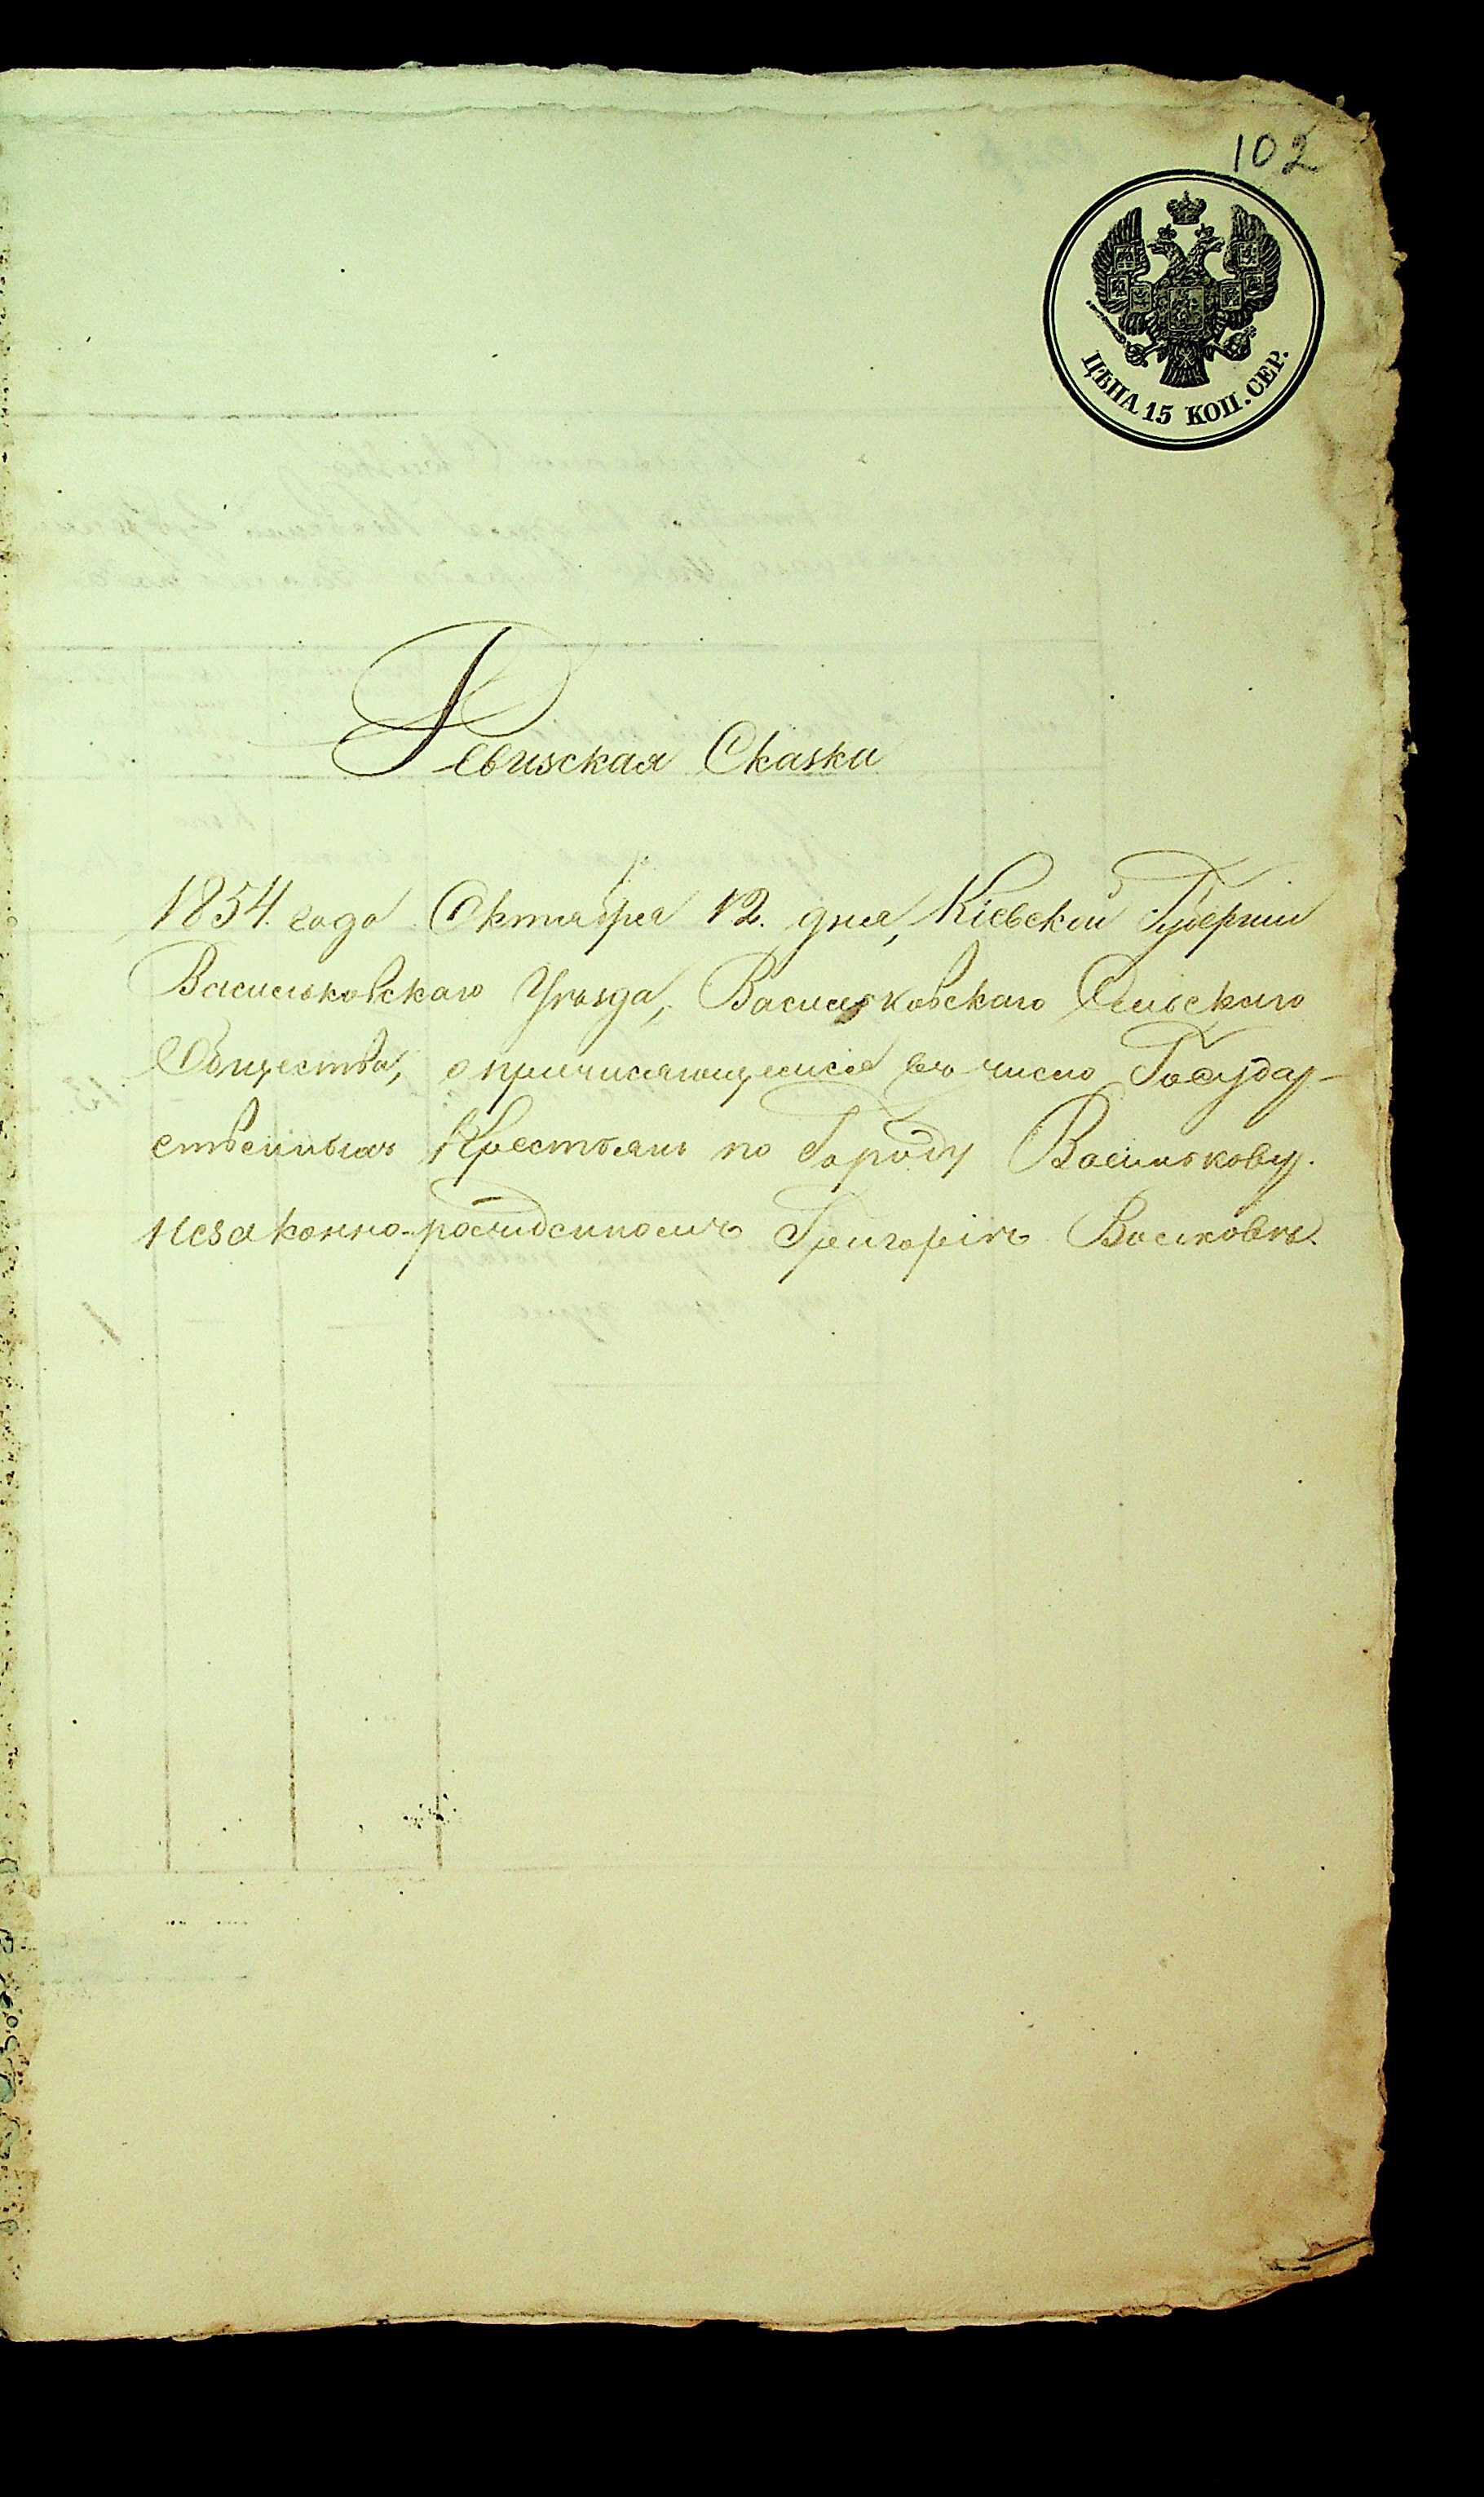 102
ЦѢНА 15 КОП. СЕР.
Ревизская Сказка
1854. года Октября 12. дня, Кіевской Губерніи
Васильковскаго Уѣзда, Васильковскаго Сельскаго
Общества, о причисляющемся въ число Государ-
ственныхъ Крестьянъ по Городу Василькову.
незаконно-рожденномъ Григоріѣ